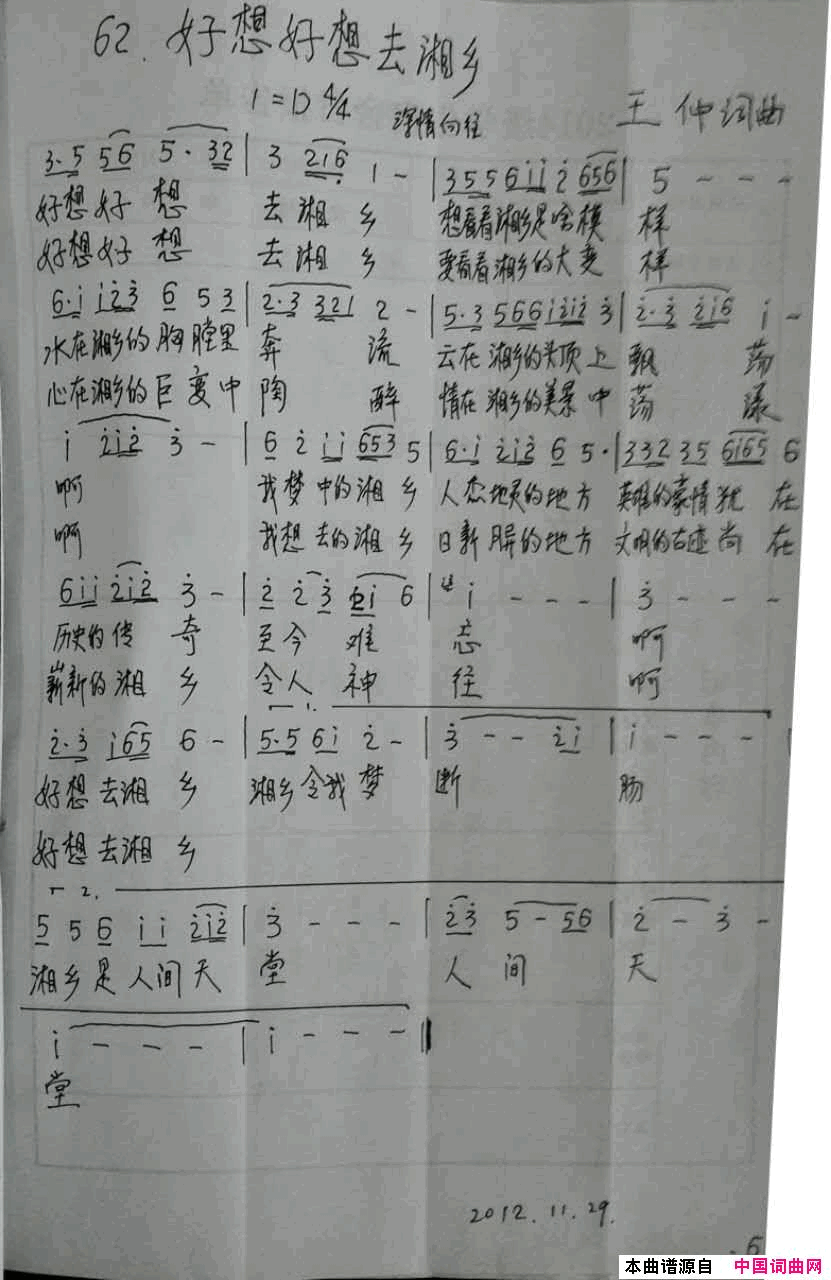 62. 好想好想去湘乡
1=D 4/4 深情向往 王仲词曲
3·5 56 5·32 | 3 216 1 - | 355 6ii 2 656 | 5 - - -
好想好想 去湘乡 想看看湘乡是啥模样
好想好想 去湘乡 要看看湘乡的大变样
6·i i23 6 5 3 | 2·3 321 2 - | 5·3 566 i2i2 3 | 2·3 2i6 i -
水在湘乡的胸膛里 奔流 云在湘乡的头顶上 飘荡
心在湘乡的巨变中 陶醉 情在湘乡的美景中 荡漾
i 2i2 3 - | 6 2 ii 653 5 | 6·i 2i2 6 5· | 332 35 6i65 6
啊 我梦中的湘乡 人杰地灵的地方 英雄的豪情犹在
啊 我想去的湘乡 日新月异的地方 文明的古迹尚在
6ii 2i2 3 - | 2 2 3 2i 6 | i - - - | 3 - - -
历史的传奇 至今难忘 啊
崭新的湘乡 令人神往 啊
1.
2·3 i65 6 - | 5·5 6i 2 - | 3 - - 2i | i - - -
好想去湘乡 湘乡令我梦断肠
好想去湘乡
2.
5 5 6 ii 2i2 | 3 - - - | 23 5 - 56 | 2 - 3 -
湘乡是人间天堂 人间天
i - - - | i - - - ‖
堂
2012.11.29.
.6
本曲谱源自 中国词曲网